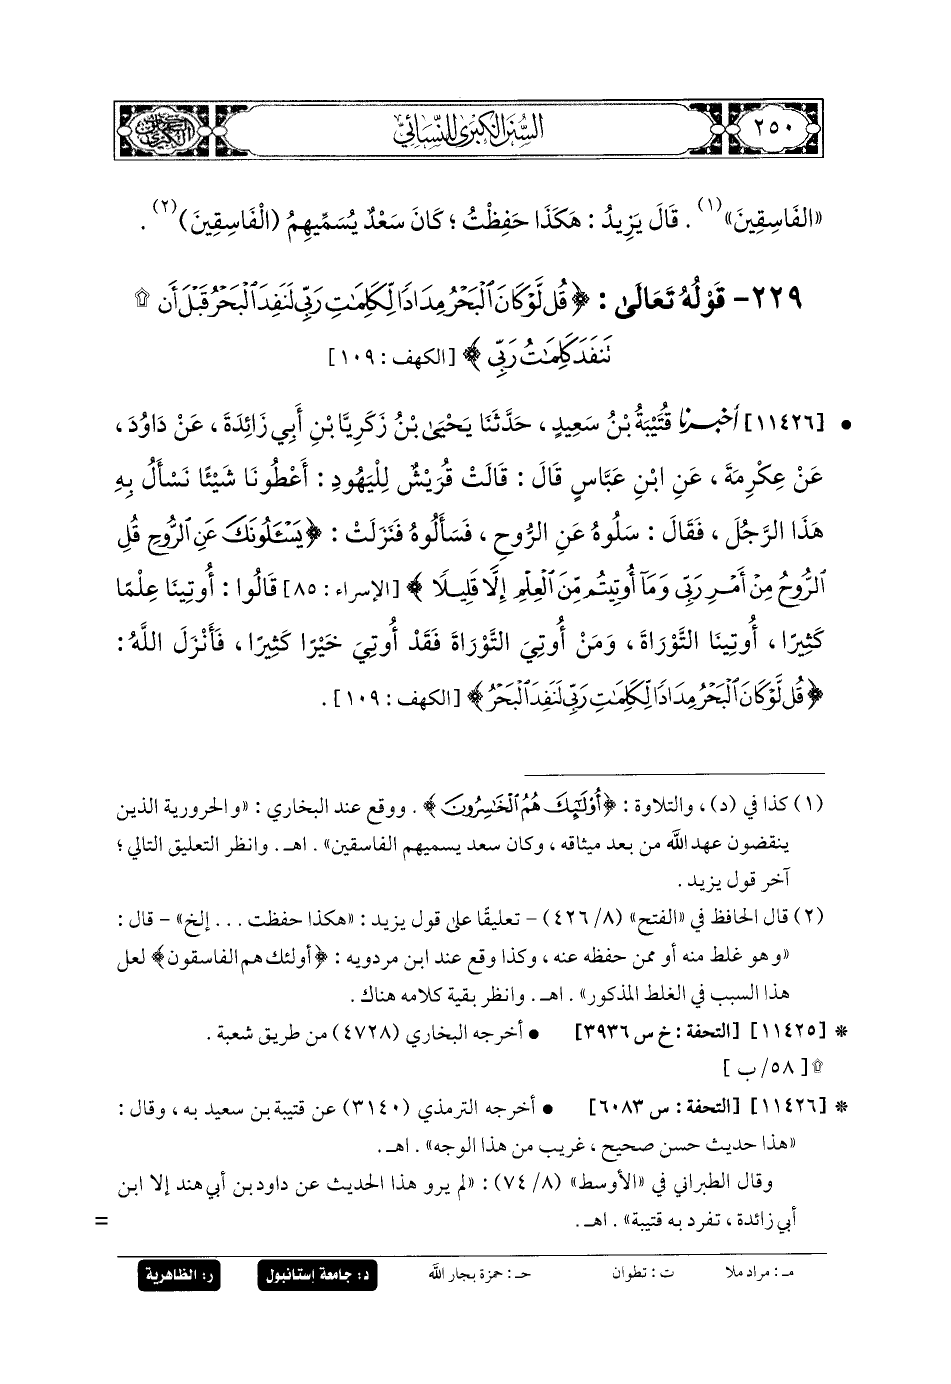 ٢٥٠
السُّنَنُ الْكُبْرَى لِلنَّسَائِيِّ
«الفَاسِقِينَ»(١). قَالَ يَزِيدُ : هَكَذَا حَفِظْتُ ؛ كَانَ سَعْدٌ يُسَمِّيهِمُ (الْفَاسِقِينَ)(٢).
٢٢٩- قَوْلُهُ تَعَالَى : ﴿ قُل لَّوْ كَانَ ٱلْبَحْرُ مِدَادًا لِّكَلِمَٰتِ رَبِّى لَنَفِدَ ٱلْبَحْرُ قَبْلَ أَن ۩
تَنفَدَ كَلِمَٰتُ رَبِّى ﴾ [الكهف : ١٠٩]
• [١١٤٢٦] أخبرنا قُتَيْبَةُ بْنُ سَعِيدٍ ، حَدَّثَنَا يَحْيَى بْنُ زَكَرِيَّا بْنِ أَبِي زَائِدَةَ ، عَنْ دَاوُدَ ،
عَنْ عِكْرِمَةَ ، عَنِ ابْنِ عَبَّاسٍ قَالَ : قَالَتْ قُرَيْشٌ لِلْيَهُودِ : أَعْطُونَا شَيْئًا نَسْأَلُ بِهِ
هَذَا الرَّجُلَ ، فَقَالَ : سَلُوهُ عَنِ الرُّوحِ ، فَسَأَلُوهُ فَنَزَلَتْ : ﴿ يَسْـَٔلُونَكَ عَنِ ٱلرُّوحِ قُلِ
ٱلرُّوحُ مِنْ أَمْرِ رَبِّى وَمَآ أُوتِيتُم مِّنَ ٱلْعِلْمِ إِلَّا قَلِيلًا ﴾ [الإسراء : ٨٥] قَالُوا : أُوتِينَا عِلْمًا
كَثِيرًا ، أُوتِينَا التَّوْرَاةَ ، وَمَنْ أُوتِيَ التَّوْرَاةَ فَقَدْ أُوتِيَ خَيْرًا كَثِيرًا ، فَأَنْزَلَ اللَّهُ :
﴿ قُل لَّوْ كَانَ ٱلْبَحْرُ مِدَادًا لِّكَلِمَٰتِ رَبِّى لَنَفِدَ ٱلْبَحْرُ ﴾ [الكهف : ١٠٩] .
(١) كذا في (د) ، والتلاوة : ﴿ أُوْلَٰٓئِكَ هُمُ ٱلْخَٰسِرُونَ ﴾ . ووقع عند البخاري : «والحرورية الذين
ينقضون عهد الله من بعد ميثاقه ، وكان سعد يسميهم الفاسقين» . اهـ . وانظر التعليق التالي ؛
آخر قول يزيد .
(٢) قال الحافظ في «الفتح» (٨/ ٤٢٦) – تعليقًا على قول يزيد : «هكذا حفظت . . . إلخ» – قال :
«وهو غلط منه أو ممن حفظه عنه ، وكذا وقع عند ابن مردويه : ﴿أولئك هم الفاسقون﴾ لعل
هذا السبب في الغلط المذكور» . اهـ . وانظر بقية كلامه هناك .
* [١١٤٢٥] [التحفة : خ س ٣٩٣٦] • أخرجه البخاري (٤٧٢٨) من طريق شعبة .
۩ [ ٥٨/ ب ]
* [١١٤٢٦] [التحفة : س ٦٠٨٣] • أخرجه الترمذي (٣١٤٠) عن قتيبة بن سعيد به ، وقال :
«هذا حديث حسن صحيح ، غريب من هذا الوجه» . اهـ .
وقال الطبراني في «الأوسط» (٨/ ٧٤) : «لم يرو هذا الحديث عن داود بن أبي هند إلا ابن
أبي زائدة ، تفرد به قتيبة» . اهـ . =
مـ : مراد ملا ت : تطوان حـ : حمزة بجار الله د: جامعة إستانبول ر: الظاهرية